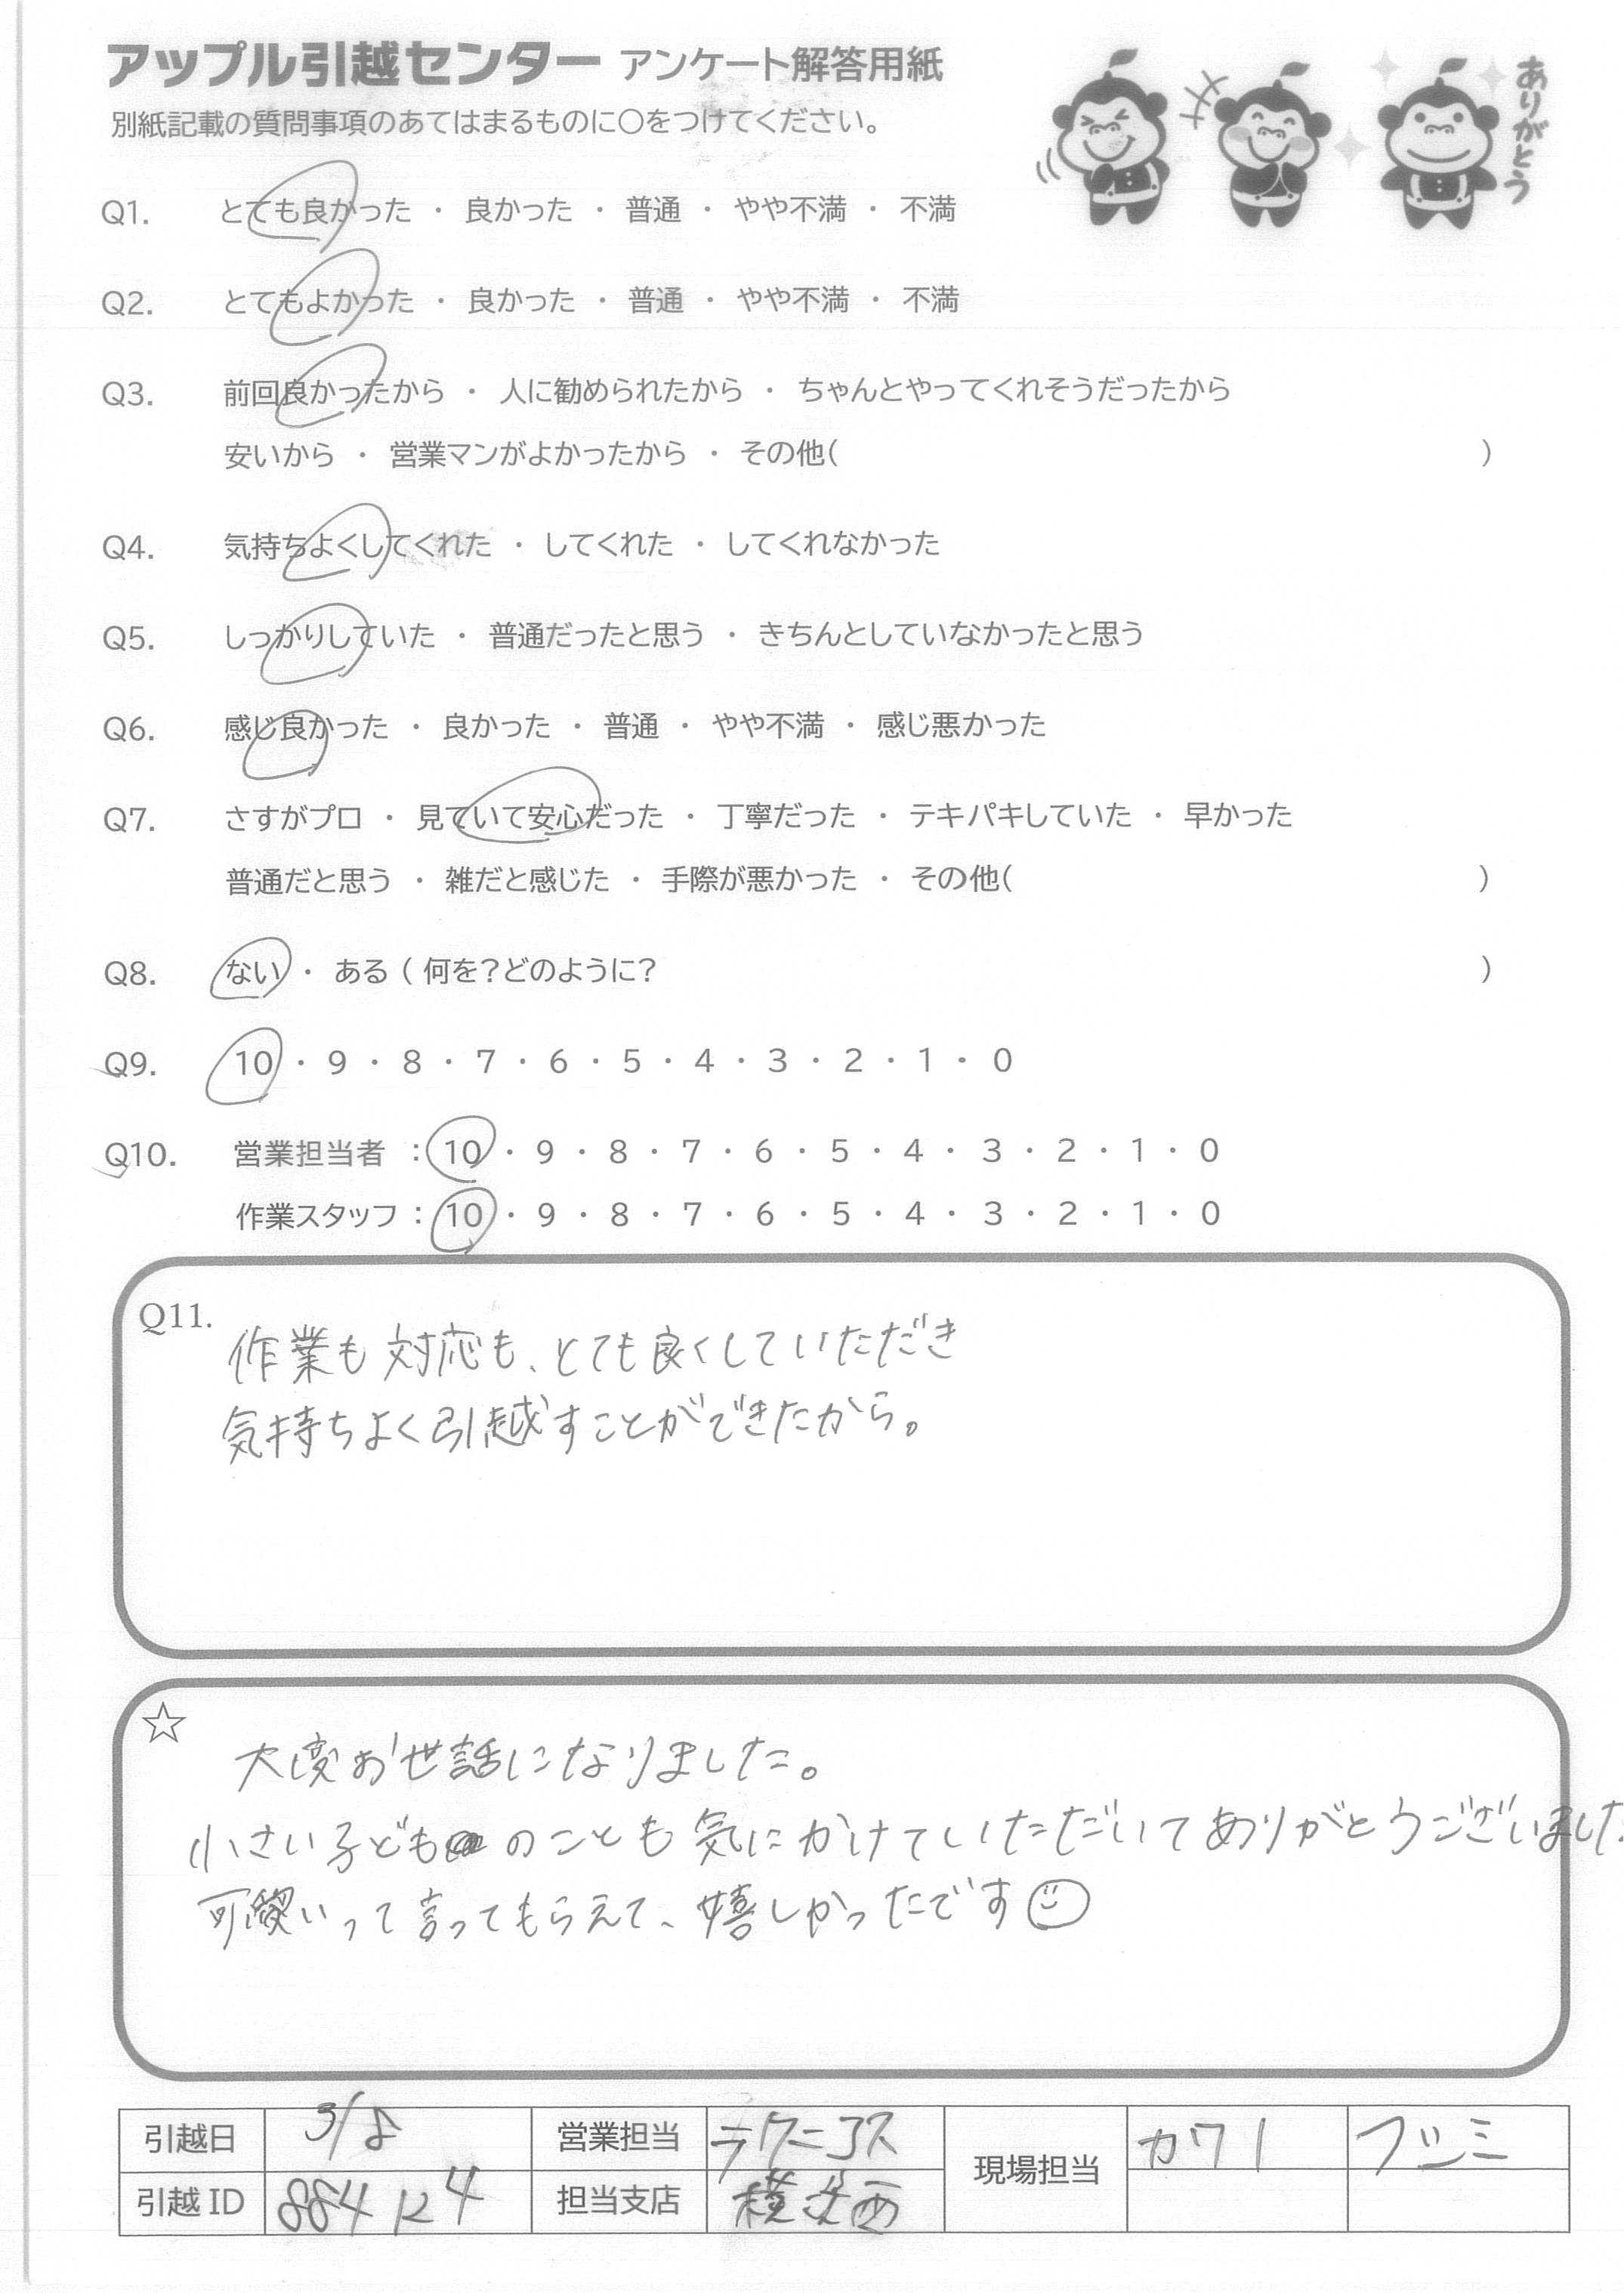 アップル引越センター アンケート解答用紙
別紙記載の質問事項のあてはまるものに〇をつけてください。
ありがとう
Q1. とても良かった ・ 良かった ・ 普通 ・ やや不満 ・ 不満
Q2. とてもよかった ・ 良かった ・ 普通 ・ やや不満 ・ 不満
Q3. 前回良かったから ・ 人に勧められたから ・ ちゃんとやってくれそうだったから
安いから ・ 営業マンがよかったから ・ その他( )
Q4. 気持ちよくしてくれた ・ してくれた ・ してくれなかった
Q5. しっかりしていた ・ 普通だったと思う ・ きちんとしていなかったと思う
Q6. 感じ良かった ・ 良かった ・ 普通 ・ やや不満 ・ 感じ悪かった
Q7. さすがプロ ・ 見ていて安心だった ・ 丁寧だった ・ テキパキしていた ・ 早かった
普通だと思う ・ 雑だと感じた ・ 手際が悪かった ・ その他( )
Q8. ない ・ ある ( 何を？どのように？ )
Q9. 10 ・ 9 ・ 8 ・ 7 ・ 6 ・ 5 ・ 4 ・ 3 ・ 2 ・ 1 ・ 0
Q10. 営業担当者 ： 10 ・ 9 ・ 8 ・ 7 ・ 6 ・ 5 ・ 4 ・ 3 ・ 2 ・ 1 ・ 0
作業スタッフ ： 10 ・ 9 ・ 8 ・ 7 ・ 6 ・ 5 ・ 4 ・ 3 ・ 2 ・ 1 ・ 0
Q11.
作業も対応も、とても良くしていただき
気持ちよく引越すことができたから。
☆
大変お世話になりました。
小さい子どものことも気にかけていただいてありがとうございました
可愛いって言ってもらえて、嬉しかったです
引越日 3/8 営業担当 現場担当 カワノ フジミ
引越ID 884124 担当支店 横浜西